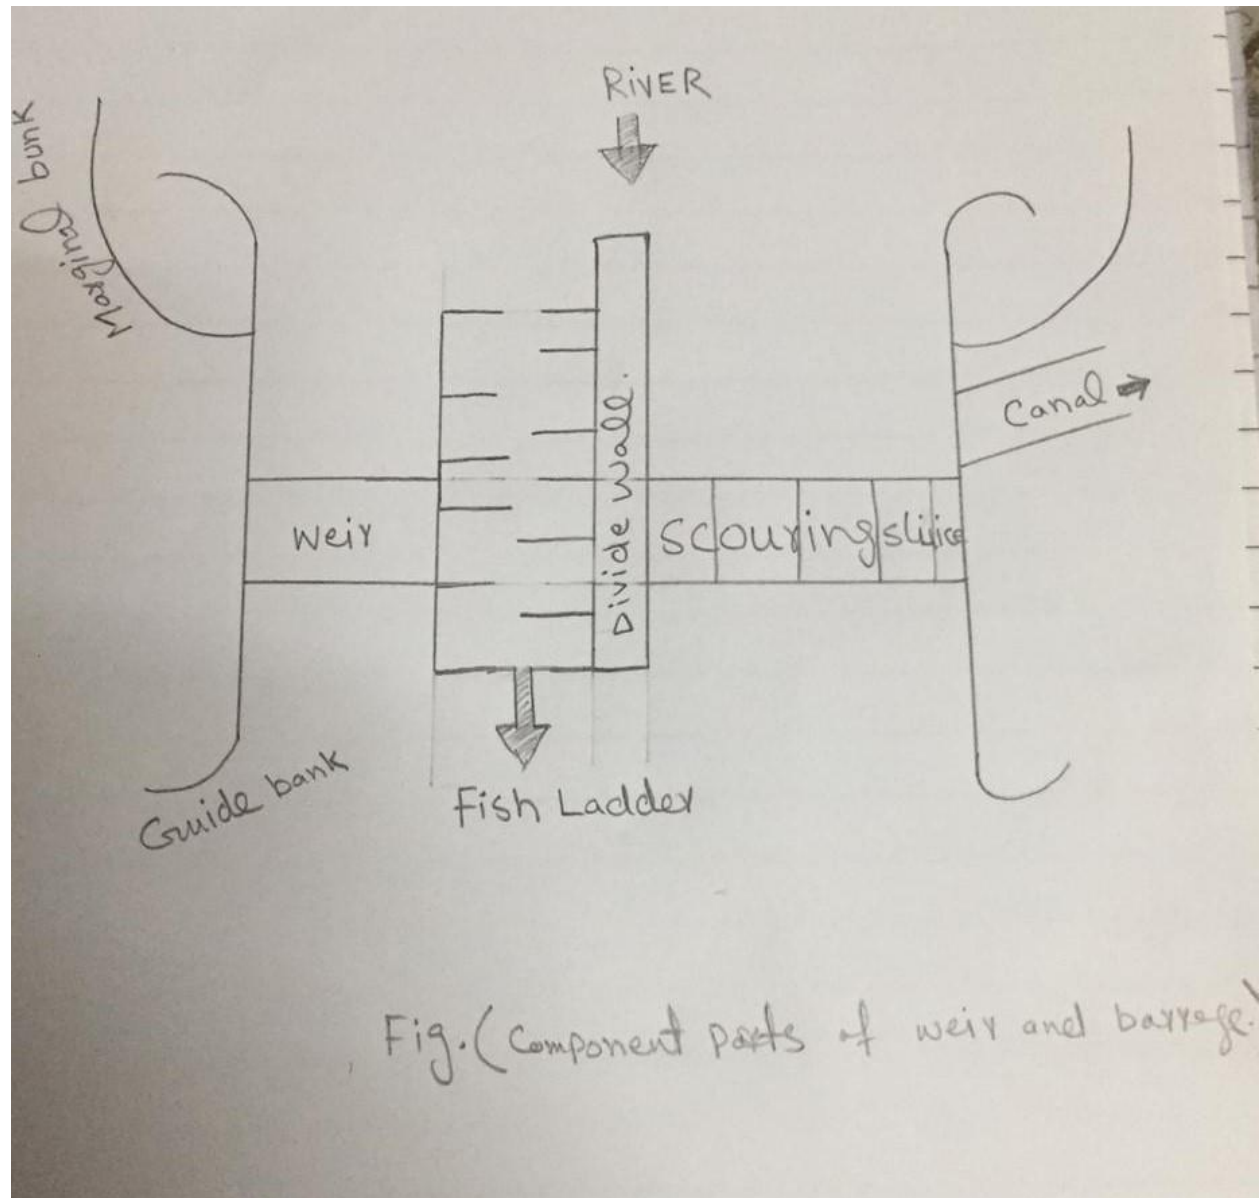 RiVER
Marginal bunk
Canal
Divide wall.
weir
Scouring sluice
Guide bank
Fish Ladder
Fig. (Component parts of weir and barrage)